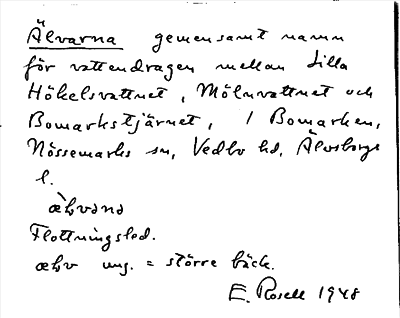 Älvarna gemensamt namn
för vattendragen mellan Lilla
Hökelsvattnet, Mölnvattnet och
Bomarkstjärnet, i Bomarken,
Nössemarks sn, Vedbo hd, Älvsborgs
l.
æ̀lvəṇə
Flottningsled.
ælv ung. = större bäck.
E. Rosell 1948